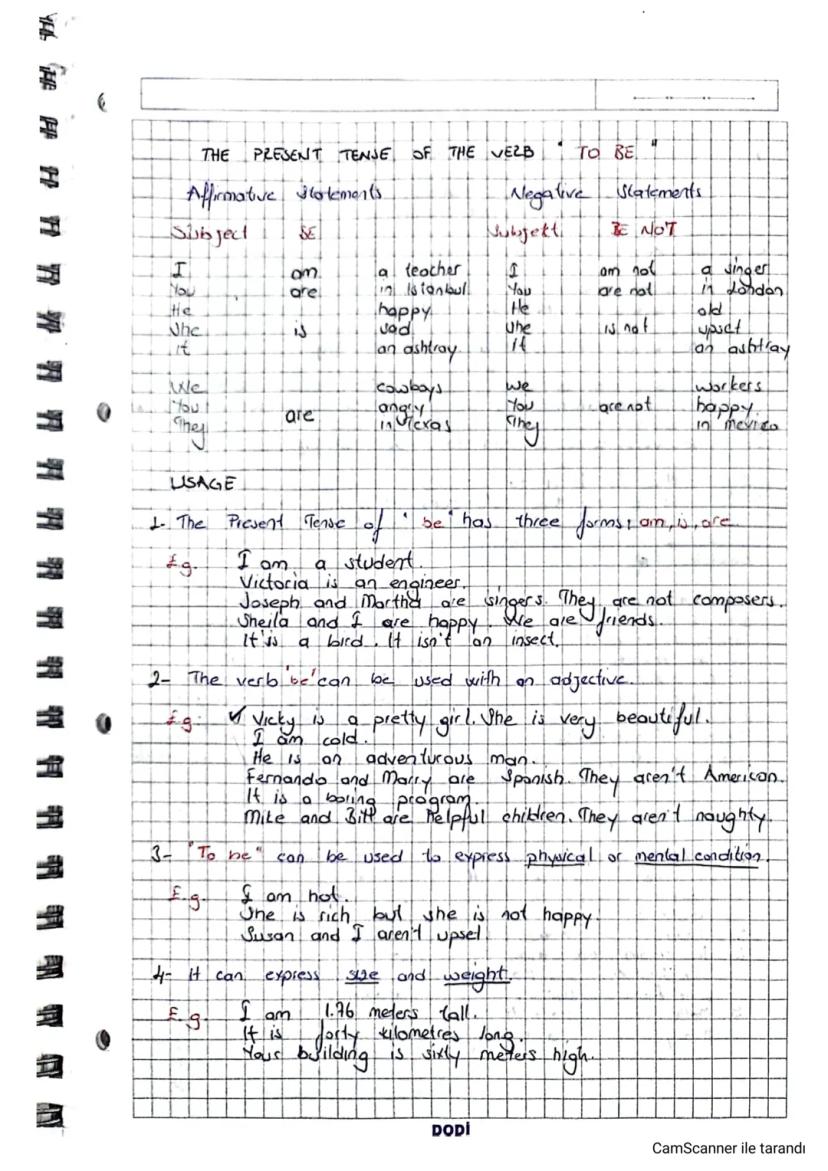 THE PRESENT TENSE OF THE VERB "TO BE"
Affirmative Statements Negative Statements
Subject BE Subjekt BE NOT
I am a teacher I am not a singer
You are in Istanbul You are not in London
He happy He old
She is sad She is not upset
It an ashtray It an ashtray
We cowboys We workers
You are angry You are not happy
They in Texas They in mexico
USAGE
1- The Present Tense of "be" has three forms; am, is, are
E.g. I am a student.
Victoria is an engineer.
Joseph and Martha are singers. They are not composers.
Sheila and I are happy. We are friends.
It is a bird. It isn't an insect.
2- The verb 'be' can be used with an adjective.
E.g. Vicky is a pretty girl. She is very beautiful.
I am cold.
He is an adventurous man.
Fernando and Marry are Spanish. They aren't American.
It is a boring program.
Mike and Bill are helpful children. They aren't naughty.
3- "To be" can be used to express physical or mental condition.
E.g. I am hot.
She is rich but she is not happy
Susan and I aren't upset
4- It can express size and weight.
E.g. I am 1.76 meters tall.
It is forty kilometres long.
Your building is sixty meters high.
DODİ
CamScanner ile tarandı